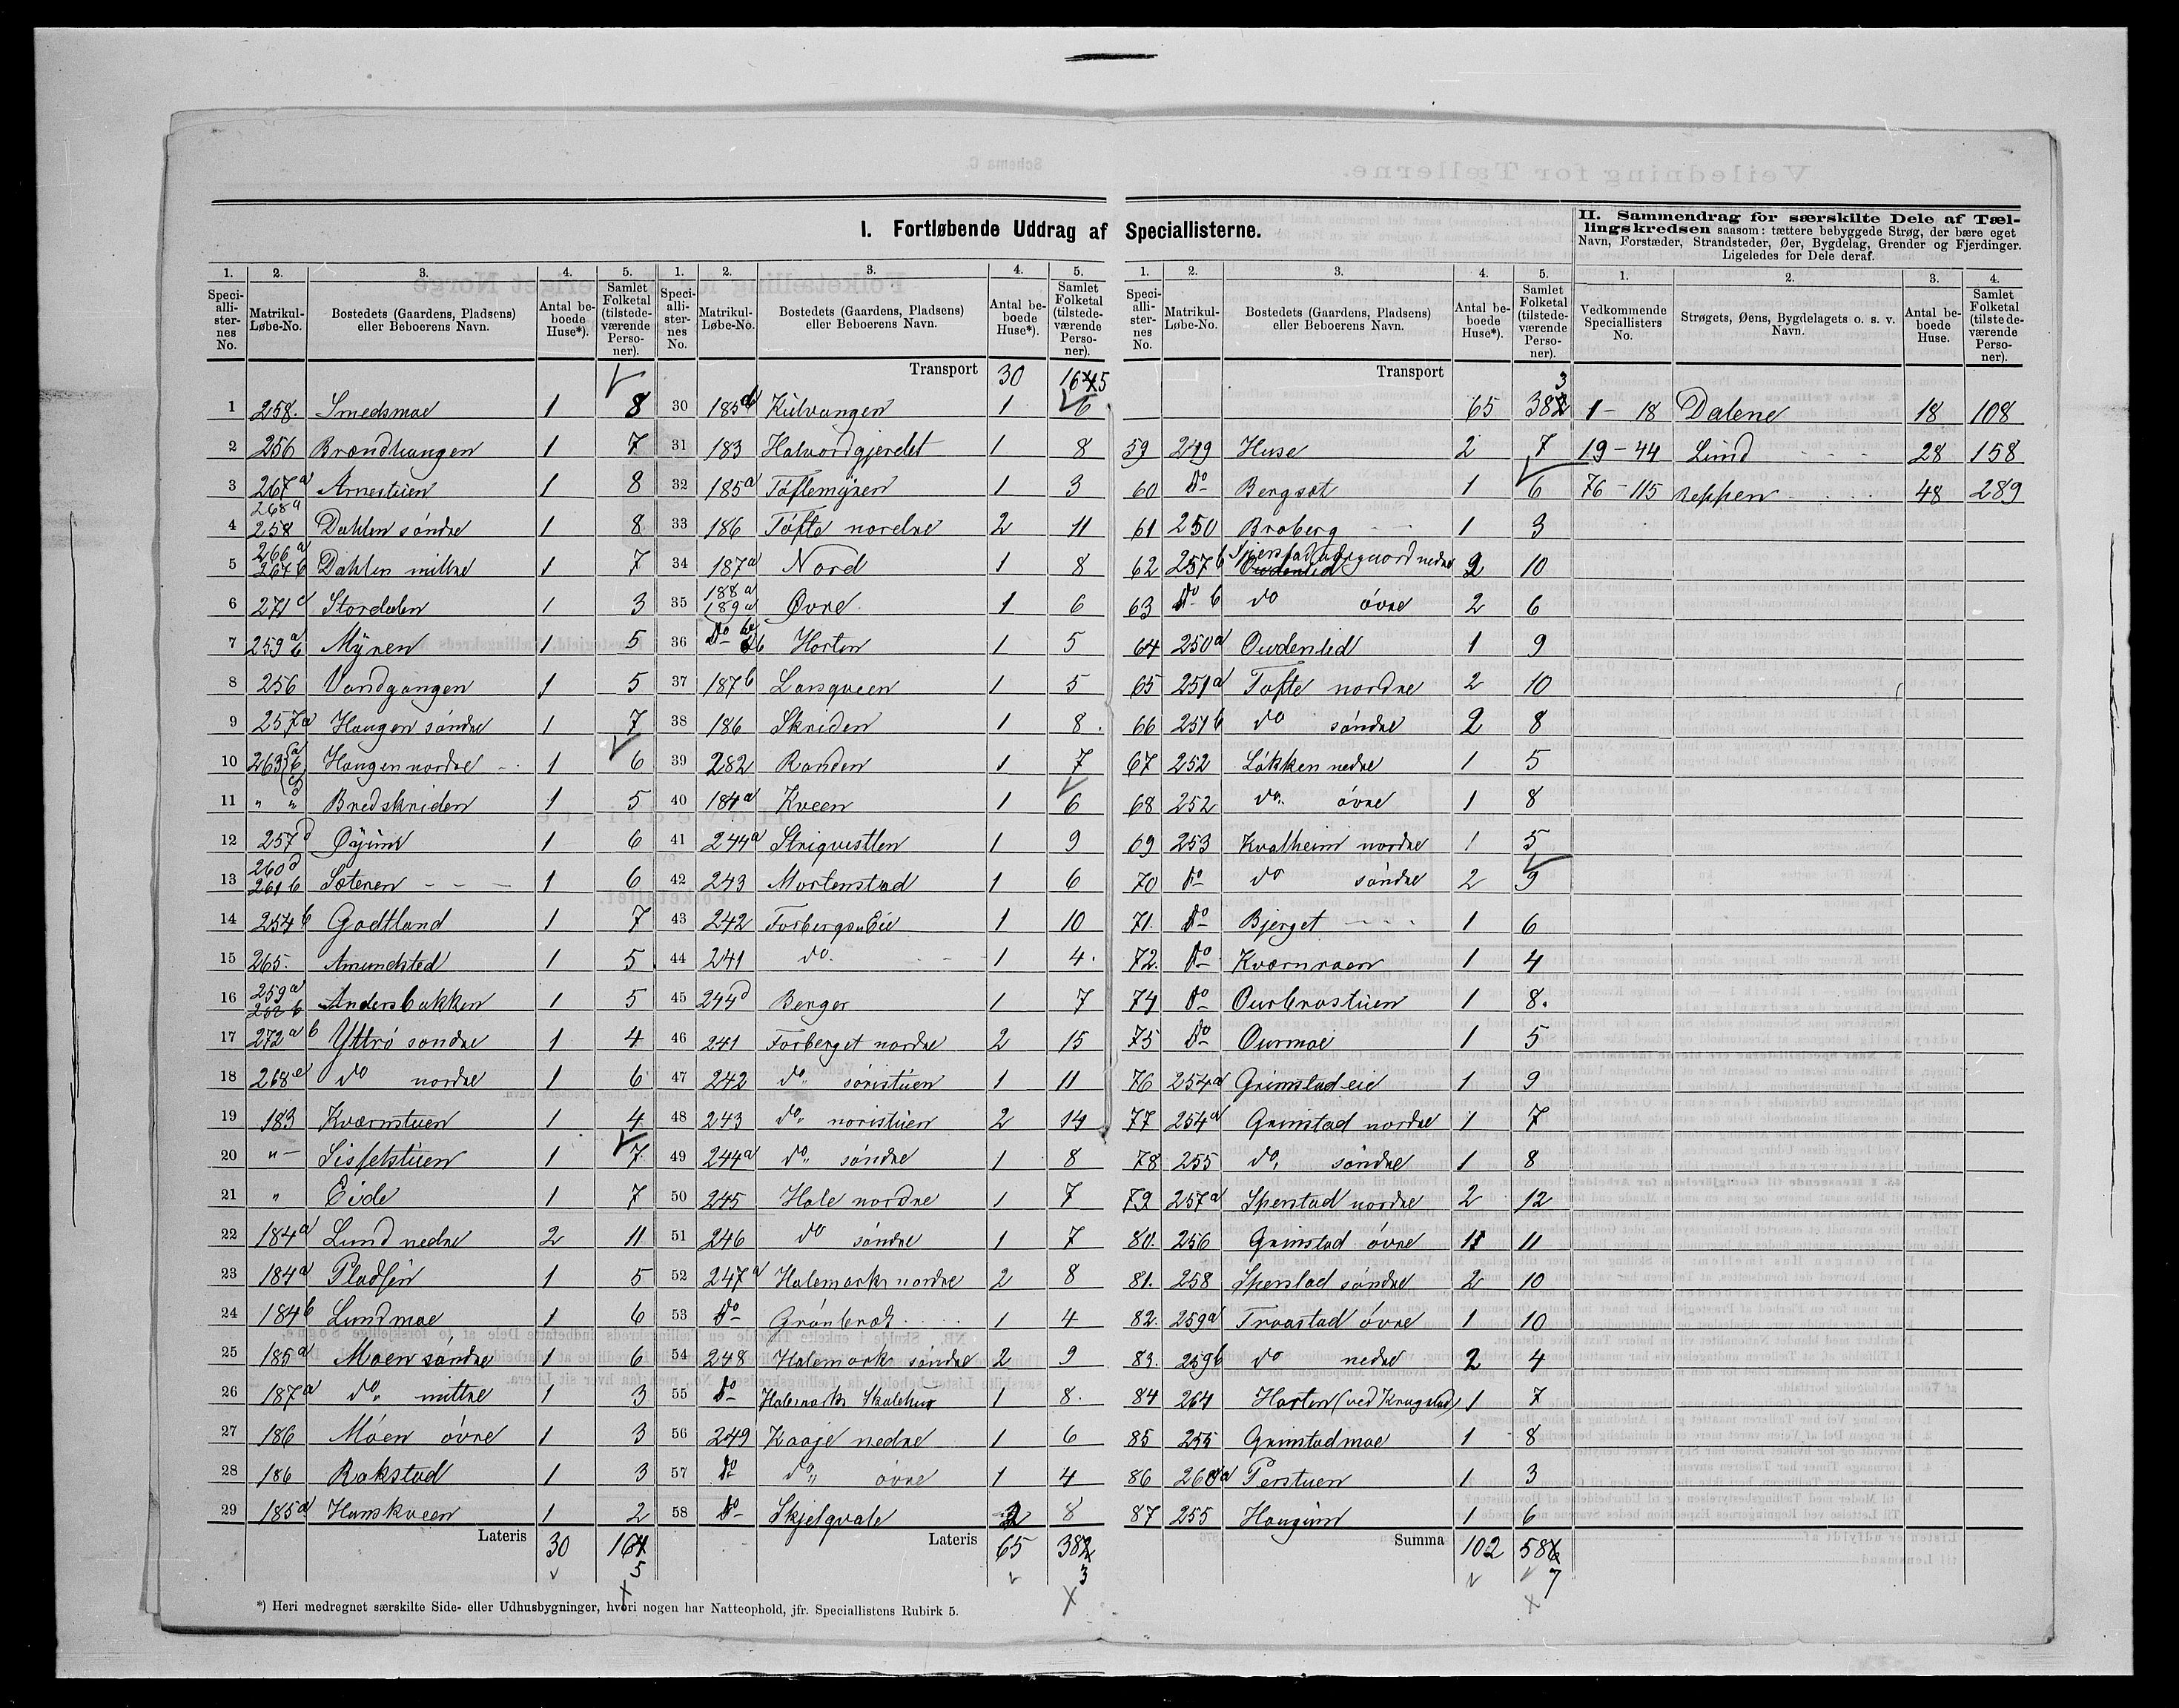 I. Fortløbende Uddrag af Speciallisterne.
II. Sammendrag for særskilte Dele af Tællingskredsen saasom: tættere bebyggede Strøg, der bære eget
Navn, Forstæder, Strandsteder, Øer, Bygdelag, Grender og Fjerdinger.
Ligeledes for Dele deraf.
1. 2. 3. 4. 5.
Speciallisternes No. Matrikul-Løbe-No. Bostedets (Gaardens, Pladsens) eller Beboerens Navn. Antal beboede Huse*). Samlet Folketal (tilstedeværende Personer).
1 258. Smedsmoe 1 8
2 256 Brændhaugen 1 7
3 267a Arnestuen 1 8
4 268a 258 Dahlen søndre 1 8
5 266a 267b Dahlen mittre 1 7
6 271a Stordalen 1 3
7 259a b Myren 1 5
8 256 Vandgangen 1 5
9 257a Haugen søndre 1 7
10 263 a b Haugen nordre 1 6
11 " " Bredskriden 1 5
12 257d Øyum 1 6
13 260d 261b Sæteren 1 6
14 254b Godtland 1 7
15 265. Amundsted 1 5
16 259a 252b Andersbakken 1 5
17 272a b Yttrø søndre 1 4
18 268 do nordre 1 6
19 183 Kværnstuen 1 4
20 " Sisselstuen 1 7
21 " Eide 1 7
22 184a Lund nedre 2 11
23 184a Pladsen 1 5
24 184b Lundmoe 1 6
25 185a Moen søndre 1 6
26 187a do mittre 1 3
27 186 Moen øvre 1 3
28 186 Rakstad 1 3
29 185a Hanskveen 1 2
Lateris 30 164 5
1. 2. 3. 4. 5.
Speciallisternes No. Matrikul-Løbe-No. Bostedets (Gaardens, Pladsens) eller Beboerens Navn. Antal beboede Huse*). Samlet Folketal (tilstedeværende Personer).
Transport 30 164 5
30 185 Kulvangen 1 6
31 183 Halvordgjerdet 1 8
32 185a Tøftemyren 1 3
33 186 Tøfte nordre 2 11
34 187a Nord 1 8
35 188a 189a Øvre 1 6
36 do Horten 1 5
37 187b Larsqveen 1 5
38 186 Skriden 1 8
39 282 Randen 1 7
40 184a Kveen 1 6
41 244a Striqvistlen 1 9
42 243 Mortenstad 1 6
43 242 Forbergseie 1 10
44 241 do 1 4
45 244d Berger 1 7
46 241 Forberget nordre 2 15
47 242 do søristuen 1 11
48 243 do noristuen 2 14
49 244a do søndre 1 8
50 245 Hole nordre 1 7
51 246 do søndre 1 7
52 247a Holemark nordre 2 8
53 do Grønbræk 1 4
54 248 Holemark søndre 2 9
55 do Holemark Skolehus 1 8
56 249 Kaaje nedre 1 6
57 do do øvre 1 4
58 do Skjelqvale 2 8
Lateris 65 382 3
1. 2. 3. 4. 5.
Speciallisternes No. Matrikul-Løbe-No. Bostedets (Gaardens, Pladsens) eller Beboerens Navn. Antal beboede Huse*). Samlet Folketal (tilstedeværende Personer).
Transport 65 382 3
59 249 Huse 2 7
60 do Bergsæt 1 6
61 250 Broberg 1 3
62 257b nedre 2 10
63 do b do øvre 2 6
64 250a Ourdenlid 1 9
65 251a Tofte nordre 2 10
66 251b do søndre 2 8
67 252 Løkken nedre 1 5
68 252 do øvre 1 8
69 253 Kvalheim nordre 1 5
70 do do søndre 2 9
71. do Bjerget 1 6
72. do Kværnroen 1 4
74 do Ourbrostuen 1 8.
75 do Ourmoe 1 5
76 254a Grimstadeie 1 9
77 254a Grimstad nordre 1 7
78 255 do søndre 1 8
79 257a Sperstad nordre 2 12
80. 256 Grimstad øvre 1 11
81. 258 Sperstad søndre 2 10
82. 259a Traastad øvre 1 10
83. 259b do nedre 2 4
84 264 Horten (ved Krugstad) 1 7
85 255 Grimstadmoe 1 8
86 260a Perstuen 1 3
87 255 Haugum 1 6
Summa 102 586 7
1. 2. 3. 4.
Vedkommende Speciallisters No. Strøgets, Øens, Bygdelagets o. s. v. Navn. Antal beboede Huse. Samlet Folketal (tilstedeværende Personer).
1 - 18 Dalene 18 108
19 - 44 Lund 28 158
76 - 115 Reppen 48 289
*) Heri medregnet særskilte Side- eller Udhusbygninger, hvori nogen har Natteophold, jfr. Speciallistens Rubirk 5.